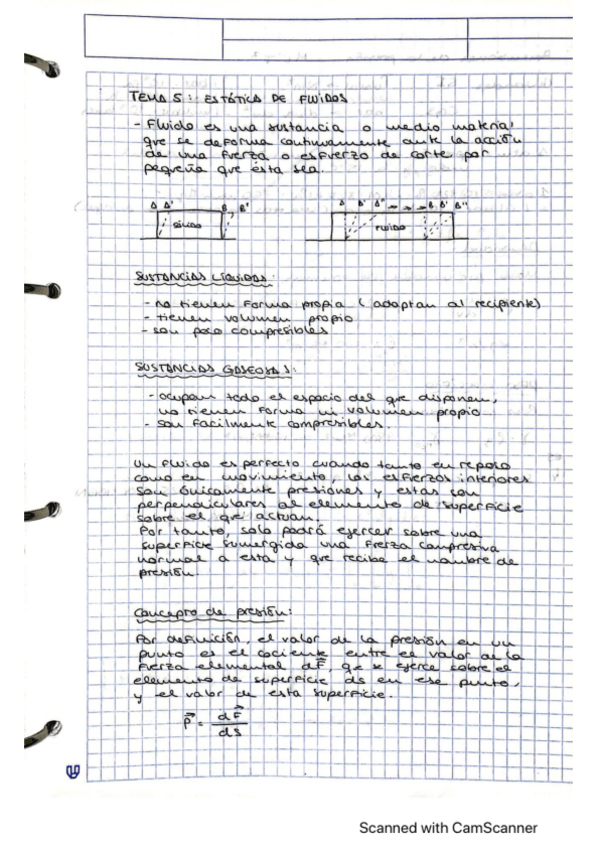 TEMA 5: ESTÁTICA DE FLUIDOS
- Fluido es una sustancia o medio material
que se deforma continuamente ante la acción
de una fuerza o esfuerzo de corte por
pequeña que ésta sea.
A A' B, B' A A' A'' B B' B''
SÓLIDO FLUIDO
SUSTANCIAS LÍQUIDAS:
- no tienen forma propia (adoptan al recipiente)
- tienen volumen propio
- son poco compresibles
SUSTANCIAS GASEOSAS:
- ocupan todo el espacio del que disponen,
no tienen forma ni volumen propio
- son facilmente compresibles.
Un fluido es perfecto cuando tanto en reposo
como en movimiento, los esfuerzos interiores
son únicamente presiones y estas son
perpendiculares al elemento de superficie
sobre el que actúan.
Por tanto, solo podrá ejercer sobre una
superficie sumergida una fuerza compresiva
normal a esta y que recibe el nombre de
presión.
Concepto de presión:
Por definición, el valor de la presión en un
punto es el cociente entre el valor de la
fuerza elemental dF, que se ejerce sobre el
elemento de superficie ds en ese punto,
y el valor de esta superficie.
P = dF
ds
Scanned with CamScanner